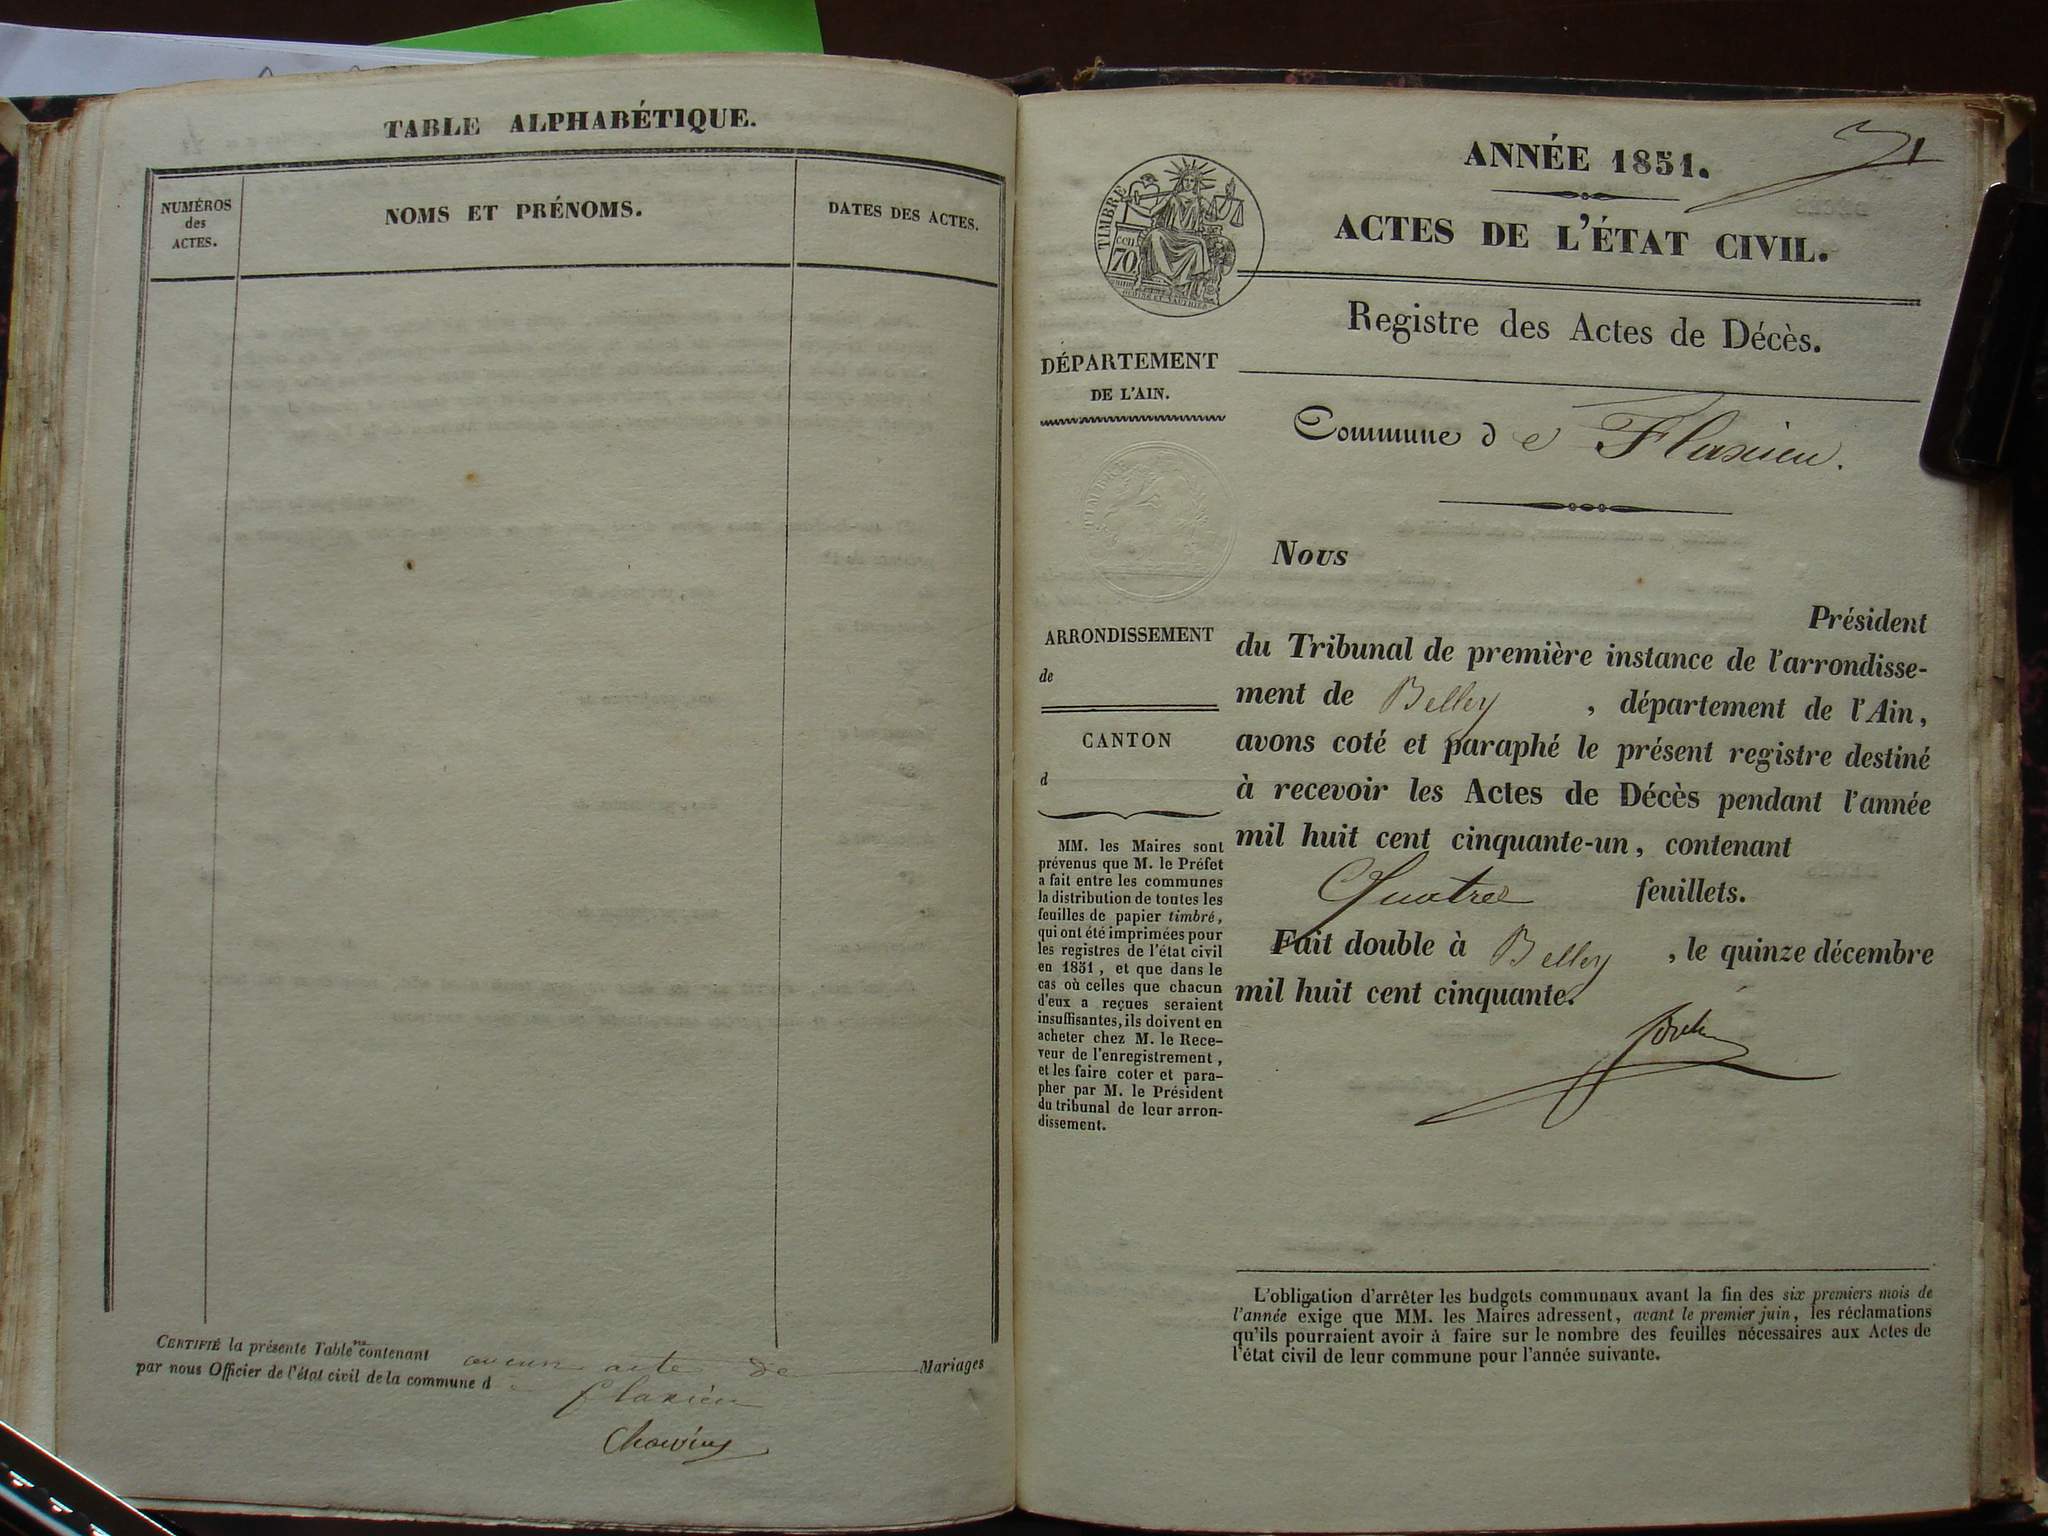 TABLE ALPHABÉTIQUE.
NUMÉROS
des
ACTES.
NOMS ET PRÉNOMS.
DATES DES ACTES.
CERTIFIÉ la présente Table contenant aucun acte de Mariages
par nous Officier de l'état civil de la commune d
flaxieu
ANNÉE 1851.
ACTES DE L'ÉTAT CIVIL.
TIMBRE
cen
70
Registre des Actes de Décès.
DÉPARTEMENT
DE L'AIN.
Commune de Flaxieu.
TIMBRE
Nous
Président
du Tribunal de première instance de l'arrondisse-
ment de Belley, département de l'Ain,
avons coté et paraphé le présent registre destiné
à recevoir les Actes de Décès pendant l'année
mil huit cent cinquante-un, contenant
Quatre feuillets.
Fait double à Belley, le quinze décembre
mil huit cent cinquante.
ARRONDISSEMENT
de
CANTON
d
MM. les Maires sont
prévenus que M. le Préfet
a fait entre les communes
la distribution de toutes les
feuilles de papier timbré,
qui ont été imprimées pour
les registres de l'état civil
en 1851, et que dans le
cas où celles que chacun
d'eux a reçues seraient
insuffisantes, ils doivent en
acheter chez M. le Rece-
veur de l'enregistrement,
et les faire coter et para-
pher par M. le Président
du tribunal de leur arron-
dissement.
L'obligation d'arrêter les budgets communaux avant la fin des six premiers mois de
l'année exige que MM. les Maires adressent, avant le premier juin, les réclamations
qu'ils pourraient avoir à faire sur le nombre des feuilles nécessaires aux Actes de
l'état civil de leur commune pour l'année suivante.